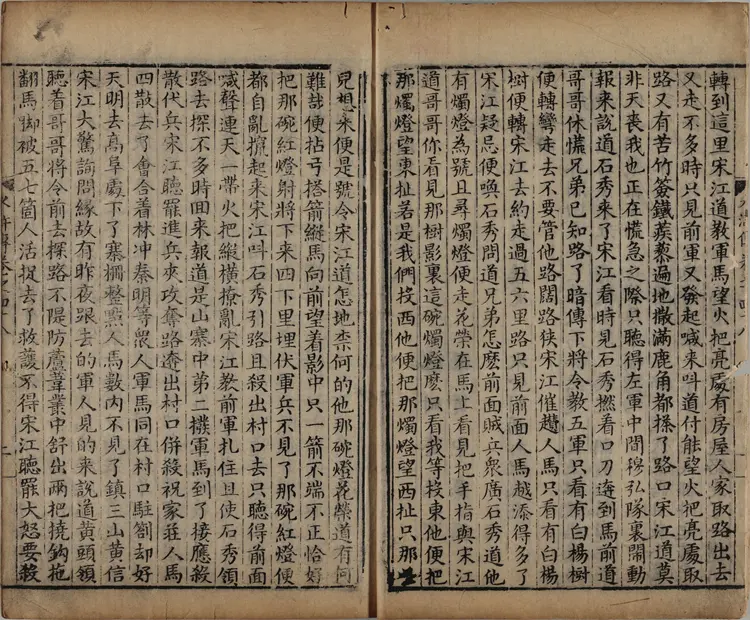 轉到這里宋江道教軍馬望火把亮處有房屋人家取路出去
又走不多時只見前軍又發起喊來呌道付能望火把亮處取
路又有苦竹簽鐵蒺藜遍地撒滿鹿角都搽了路口宋江道莫
非天喪我也正在慌急之際只聽得左軍中間穆弘隊裏鬧動
報來說道石秀來了宋江看時見石秀撚着口刀迯到馬前道
哥哥休慌兄弟已知路了暗傳下將令教五軍只看有白楊樹
便轉彎走去不要管他路闊路狹宋江催趲人馬只看有白楊
樹便轉宋江去約走過五六里路只見前面人馬越添得多了
宋江疑忌便喚石秀問道兄弟怎麽前面賊兵衆廣石秀道他
有燭燈為號且尋燭燈便走花榮在馬上看見把手指與宋江
道哥哥你看見那樹影裏這碗燭燈麽只看我等投東他便把
那燭燈望東扯若是我們投西他便把那燭燈望西扯只那些
兒想來便是號令宋江道怎地柰何的他那碗燈花榮道有何
難哉便拈弓搭箭縱馬向前望着影中只一箭不端不正恰好
把那碗紅燈射將下來四下里埋伏軍兵不見了那碗紅燈便
都自亂攛起來宋江呌石秀引路且殺出村口去只聽得前面
喊聲連天一帶火把縱橫撩亂宋江教前軍扎住且使石秀領
路去探不多時回來報道是山寨中第二撥軍馬到了接應殺
散伏兵宋江聽罷進兵夾攻奪路奔出村口併殺祝家莊人馬
四散去了會合着林冲秦明等衆人軍馬同在村口駐劄却好
天明去高阜處下了寨柵整點人馬數內不見了鎮三山黃信
宋江大驚詢問緣故有昨夜跟去的軍人見的來說道黃頭領
聽着哥哥將令前去探路不隄防蘆葦叢中舒出兩把撓鈎拖
翻馬脚被五七箇人活捉去了救護不得宋江聽罷大怒要殺